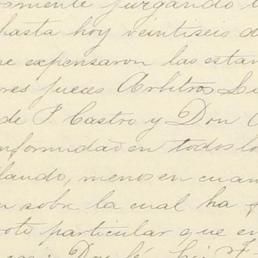 amente juzgando
hasta hoy veintiseis de
se expensaron las estam
res jueces Arbitros, Li
de P. Castro y Don
nformidad en todos lo
llando, menos en cuan
n sobre la cual ha
voto particular que en